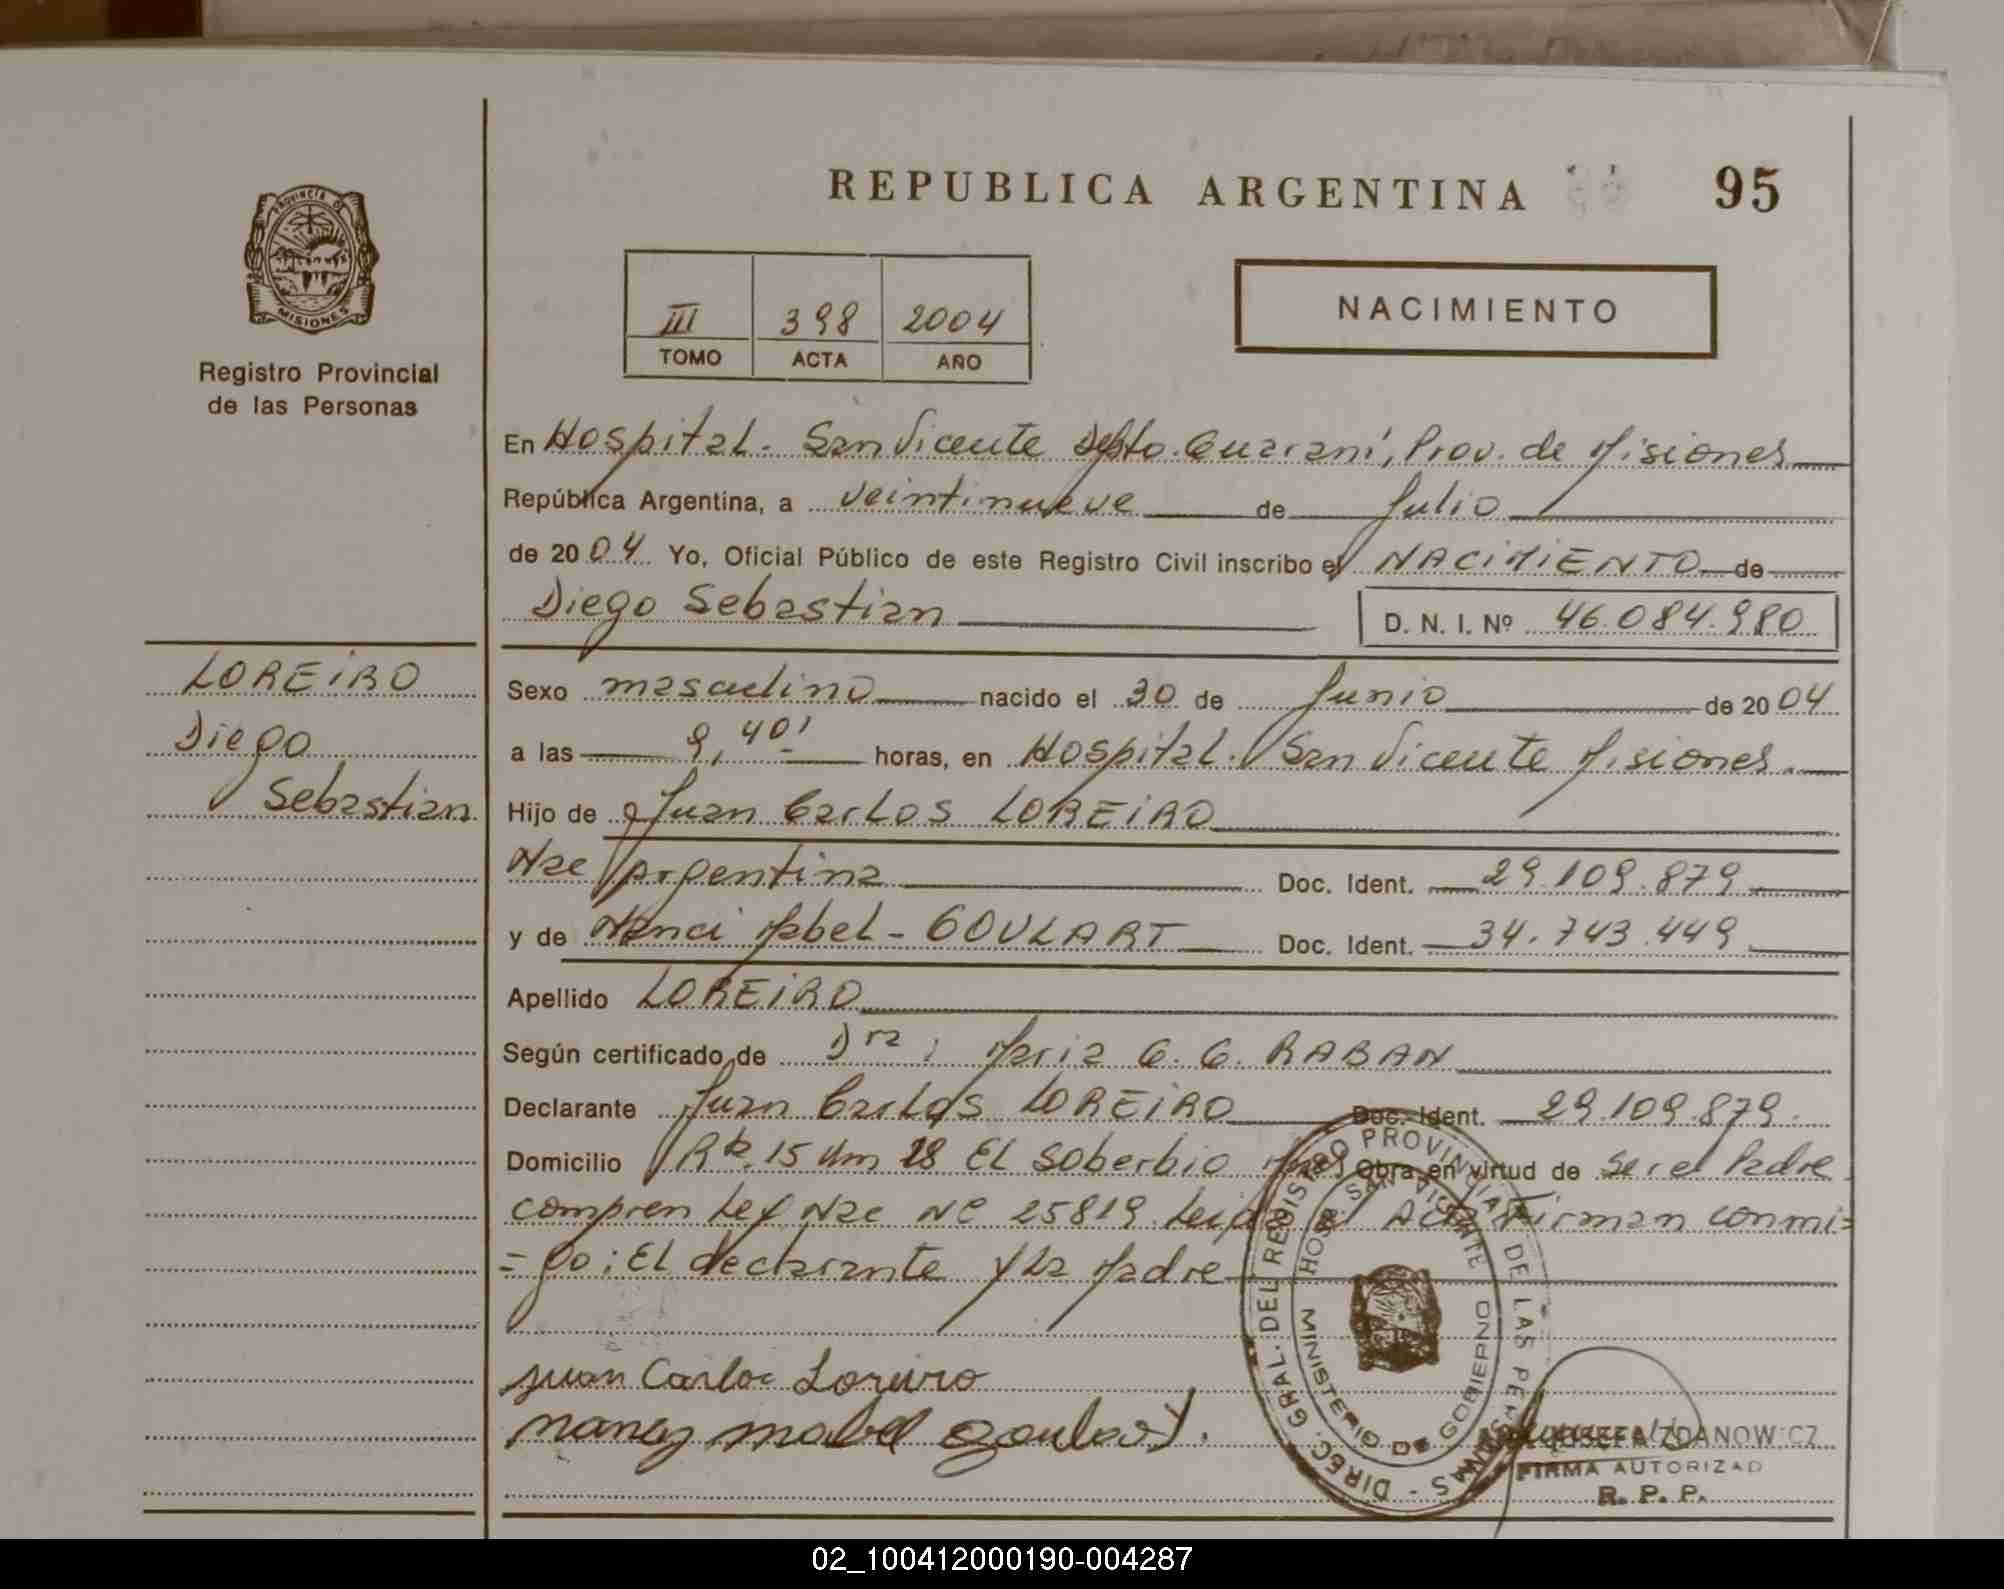 REPUBLICA ARGENTINA 95
PROVINCIA D
MISIONES
Registro Provincial
de las Personas
III 398 2004
TOMO ACTA AÑO
NACIMIENTO
En Hospital - San Vicente Depto. Guaraní, Prov. de Misiones
República Argentina, a veintinueve de Julio
de 2004 Yo, Oficial Público de este Registro Civil inscribo el NACIMIENTO de
Diego Sebastian D. N. I. Nº 46.084.980
LOREIRO
Diego
Sebastian
Sexo masculino nacido el 30 de Junio de 2004
a las 9,40' horas, en Hospital. San Vicente Misiones.
Hijo de Juan Carlos LOREIRO
Nac Argentina Doc. Ident. 29.109.879
y de Nanci Mabel - GOULART Doc. Ident. 34.743.449
Apellido LOREIRO
Según certificado de Dra: Maria G. G. RABAN
Declarante Juan Carlos LOREIRO Doc. Ident. 29.109.879.
Domicilio 15 Km 28 EL Soberbio Obra en virtud de ser el Padre
compren Ley Nac Nº 25819. Leida el Acta Firman conmi=
=go: El declarante y La Madre
Juan Carlos Loreiro
nancy mabel goulart.
DIREC. GRAL. DEL REGISTRO PROVINCIAL DE LAS PERSONAS -
HOSP. SAN VICENTE
MINISTERIO DE GOBIERNO
JOSEFA ZDANOWICZ
FIRMA AUTORIZAD
R. P. P.
02_100412000190-004287